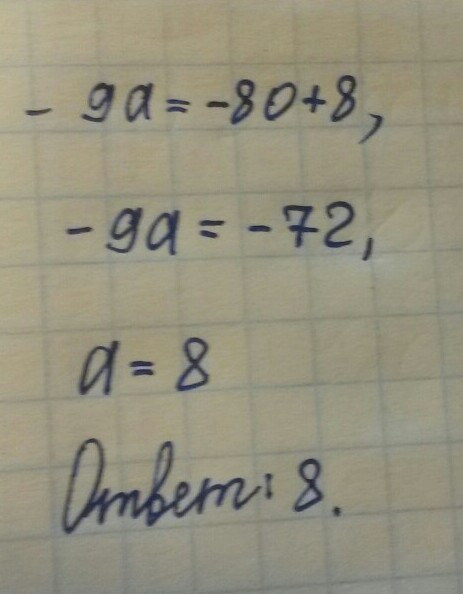 - 9a = -80+8,
- 9a = -72,
a = 8
Ответ: 8.